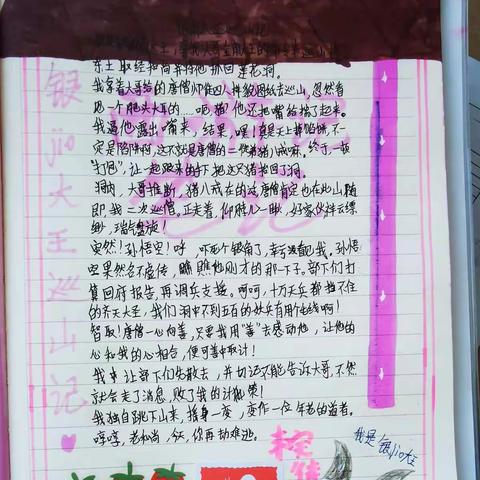 银jiǎo大王巡山记
东土取经和尚并将他抓回莲花洞。
我拿着大哥给的唐僧师徒四人样貌图纸去巡山,忽然看
见一个肥头大耳的……呃,猪?他还把嘴给揣了起来。
我逼他露出嘴来,结果,嘿!真是天上掉馅饼,不一
定是陷阱啊,这不就是唐僧的二徒弟猪八戒嘛。终于一顿
"打包",让一起跟来的手下把这只猪老回了洞。
洞内,大哥推断,猪八戒在的话唐僧肯定也在此山,随
即,我二次巡僧。正走着,仰脖儿一瞅,好家伙祥云缥
缈,瑞气盘旋!
突然!孙悟空!呼,吓死个银角了,幸亏没看见我。孙悟
空果然名不虚传,瞧瞧他刚才的那一下子。部下们打
算回府报告,再调兵支援。呵呵,十万天兵都挡不住
的齐天大圣,我们洞中不到五百的妖兵有用个毛线啊!
智取!唐僧一心向善,只要我用"善"去感动他,让他的
心和我的心相合,便可善中取计!
我 让部下们先散去,并切记不能告诉大哥,不然
就会走了消息,败了我的计策策!
我独自跳下山来,摇身一变,变作一位年老的道者。
哼哼,老和尚,叙,你再劫难逃。
我是银jiǎo大王